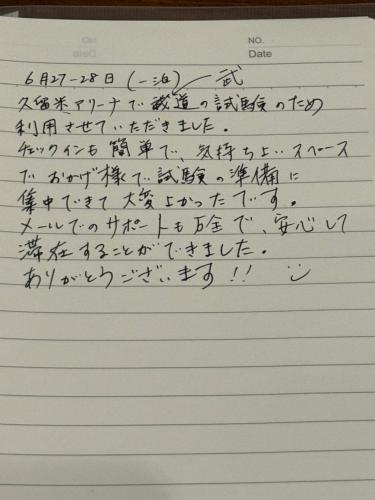 NO.
Date
6月27-28日 (一泊) 武
久留米アリーナで武道の試験のため
利用させていただきました。
チェックインも簡単で、気持ちよいスペース
でおかげ様で試験の準備に
集中できて大変よかったです。
メールでのサポートも万全で、安心して
滞在することができました。
ありがとうございます!!